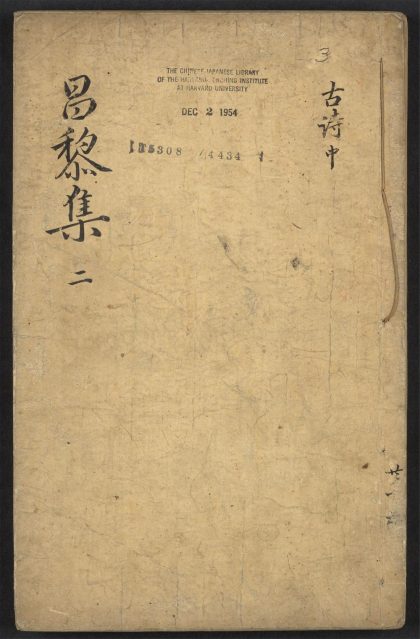 3
古诗中
THE CHINESE-JAPANESE LIBRARY
OF THE HARVARD-YENCHING INSTITUTE
AT HARVARD UNIVERSITY
DEC 2 1954
昌黎集
二